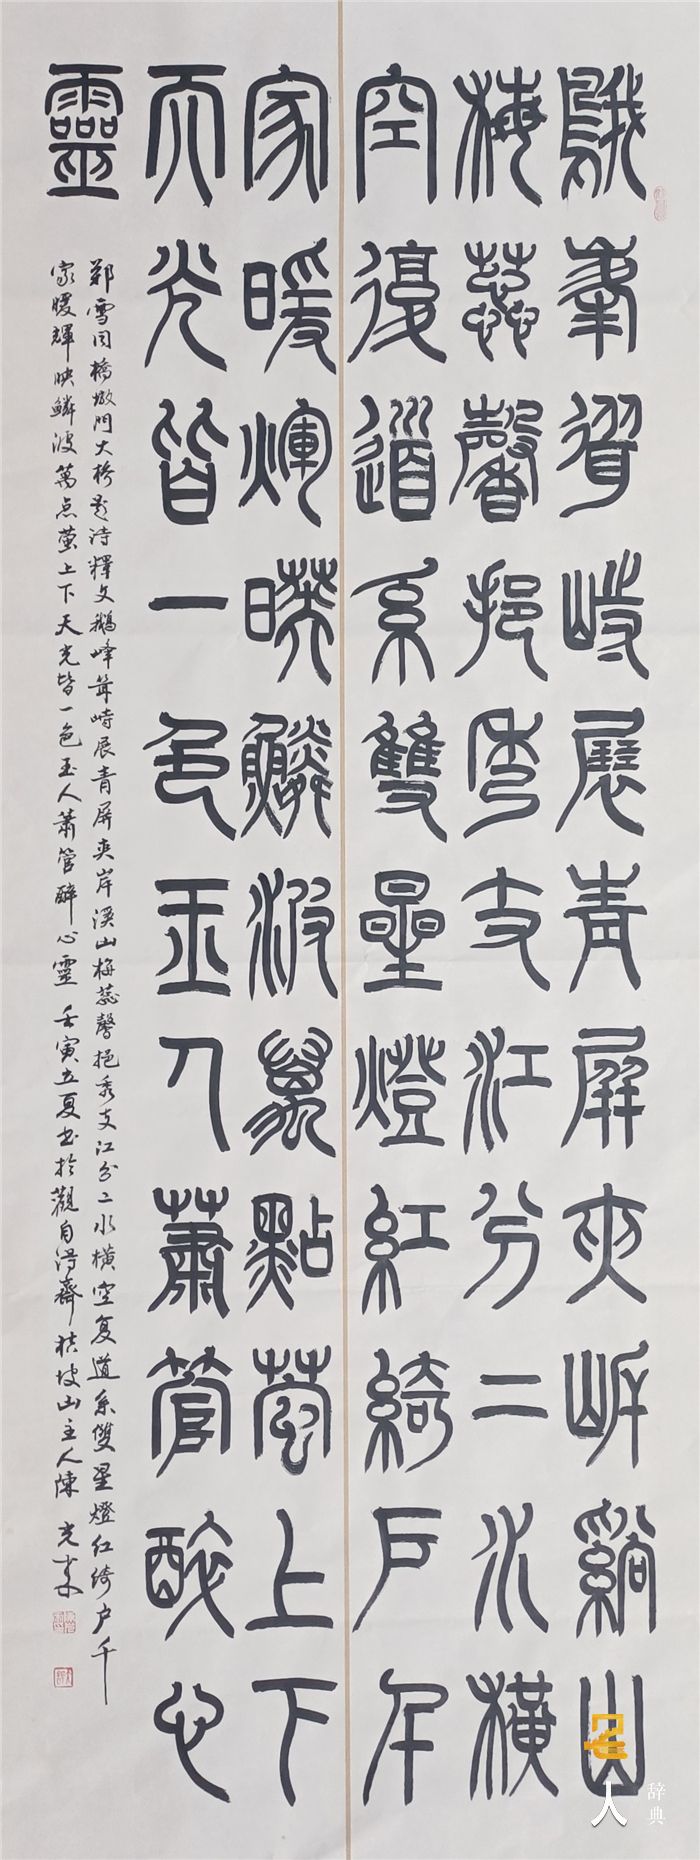 鵝峯聳峙展青屏夾岸谿山
梅蕊馨挹秀支江分二水橫
空復道系雙星燈紅綺戶千
家暖煇映鱗波萬點螢上下
天光皆一色玉人蕭管醉心
靈
鄭雪橋墩門大桥题诗釋文鵝峰耸峙展青屏夾岸溪山梅蕊馨挹秀支江分二水橫空复道系雙星燈红绮户千
家暖輝映鱗波萬点萤上下天光皆一色玉人萧管醉心靈 壬寅立夏书於觀自得齋 桔坡山主人陳光
名人
辞典